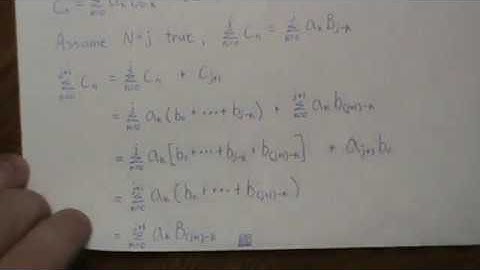 Cₙ = Σₙ₌₀ aₙ
Assume N=j true, Σₙ₌₀ʲ Cₙ = Σₙ₌₀ʲ aₙ Bⱼ₋ₙ
Σₙ₌₀ʲ⁺¹ Cₙ = Σₙ₌₀ʲ Cₙ + Cⱼ₊₁
= Σₙ₌₀ʲ aₙ(b₀ + ⋯ + bⱼ₋ₙ) + Σₙ₌₀ʲ⁺¹ aₙ b₍ⱼ₊₁₎₋ₙ
= Σₙ₌₀ʲ aₙ[b₀ + ⋯ + bⱼ₋ₙ + b₍ⱼ₊₁₎₋ₙ] + aⱼ₊₁ b₀
= Σₙ₌₀ʲ⁺¹ aₙ(b₀ + ⋯ + b₍ⱼ₊₁₎₋ₙ)
= Σₙ₌₀ʲ⁺¹ aₙ B₍ⱼ₊₁₎₋ₙ